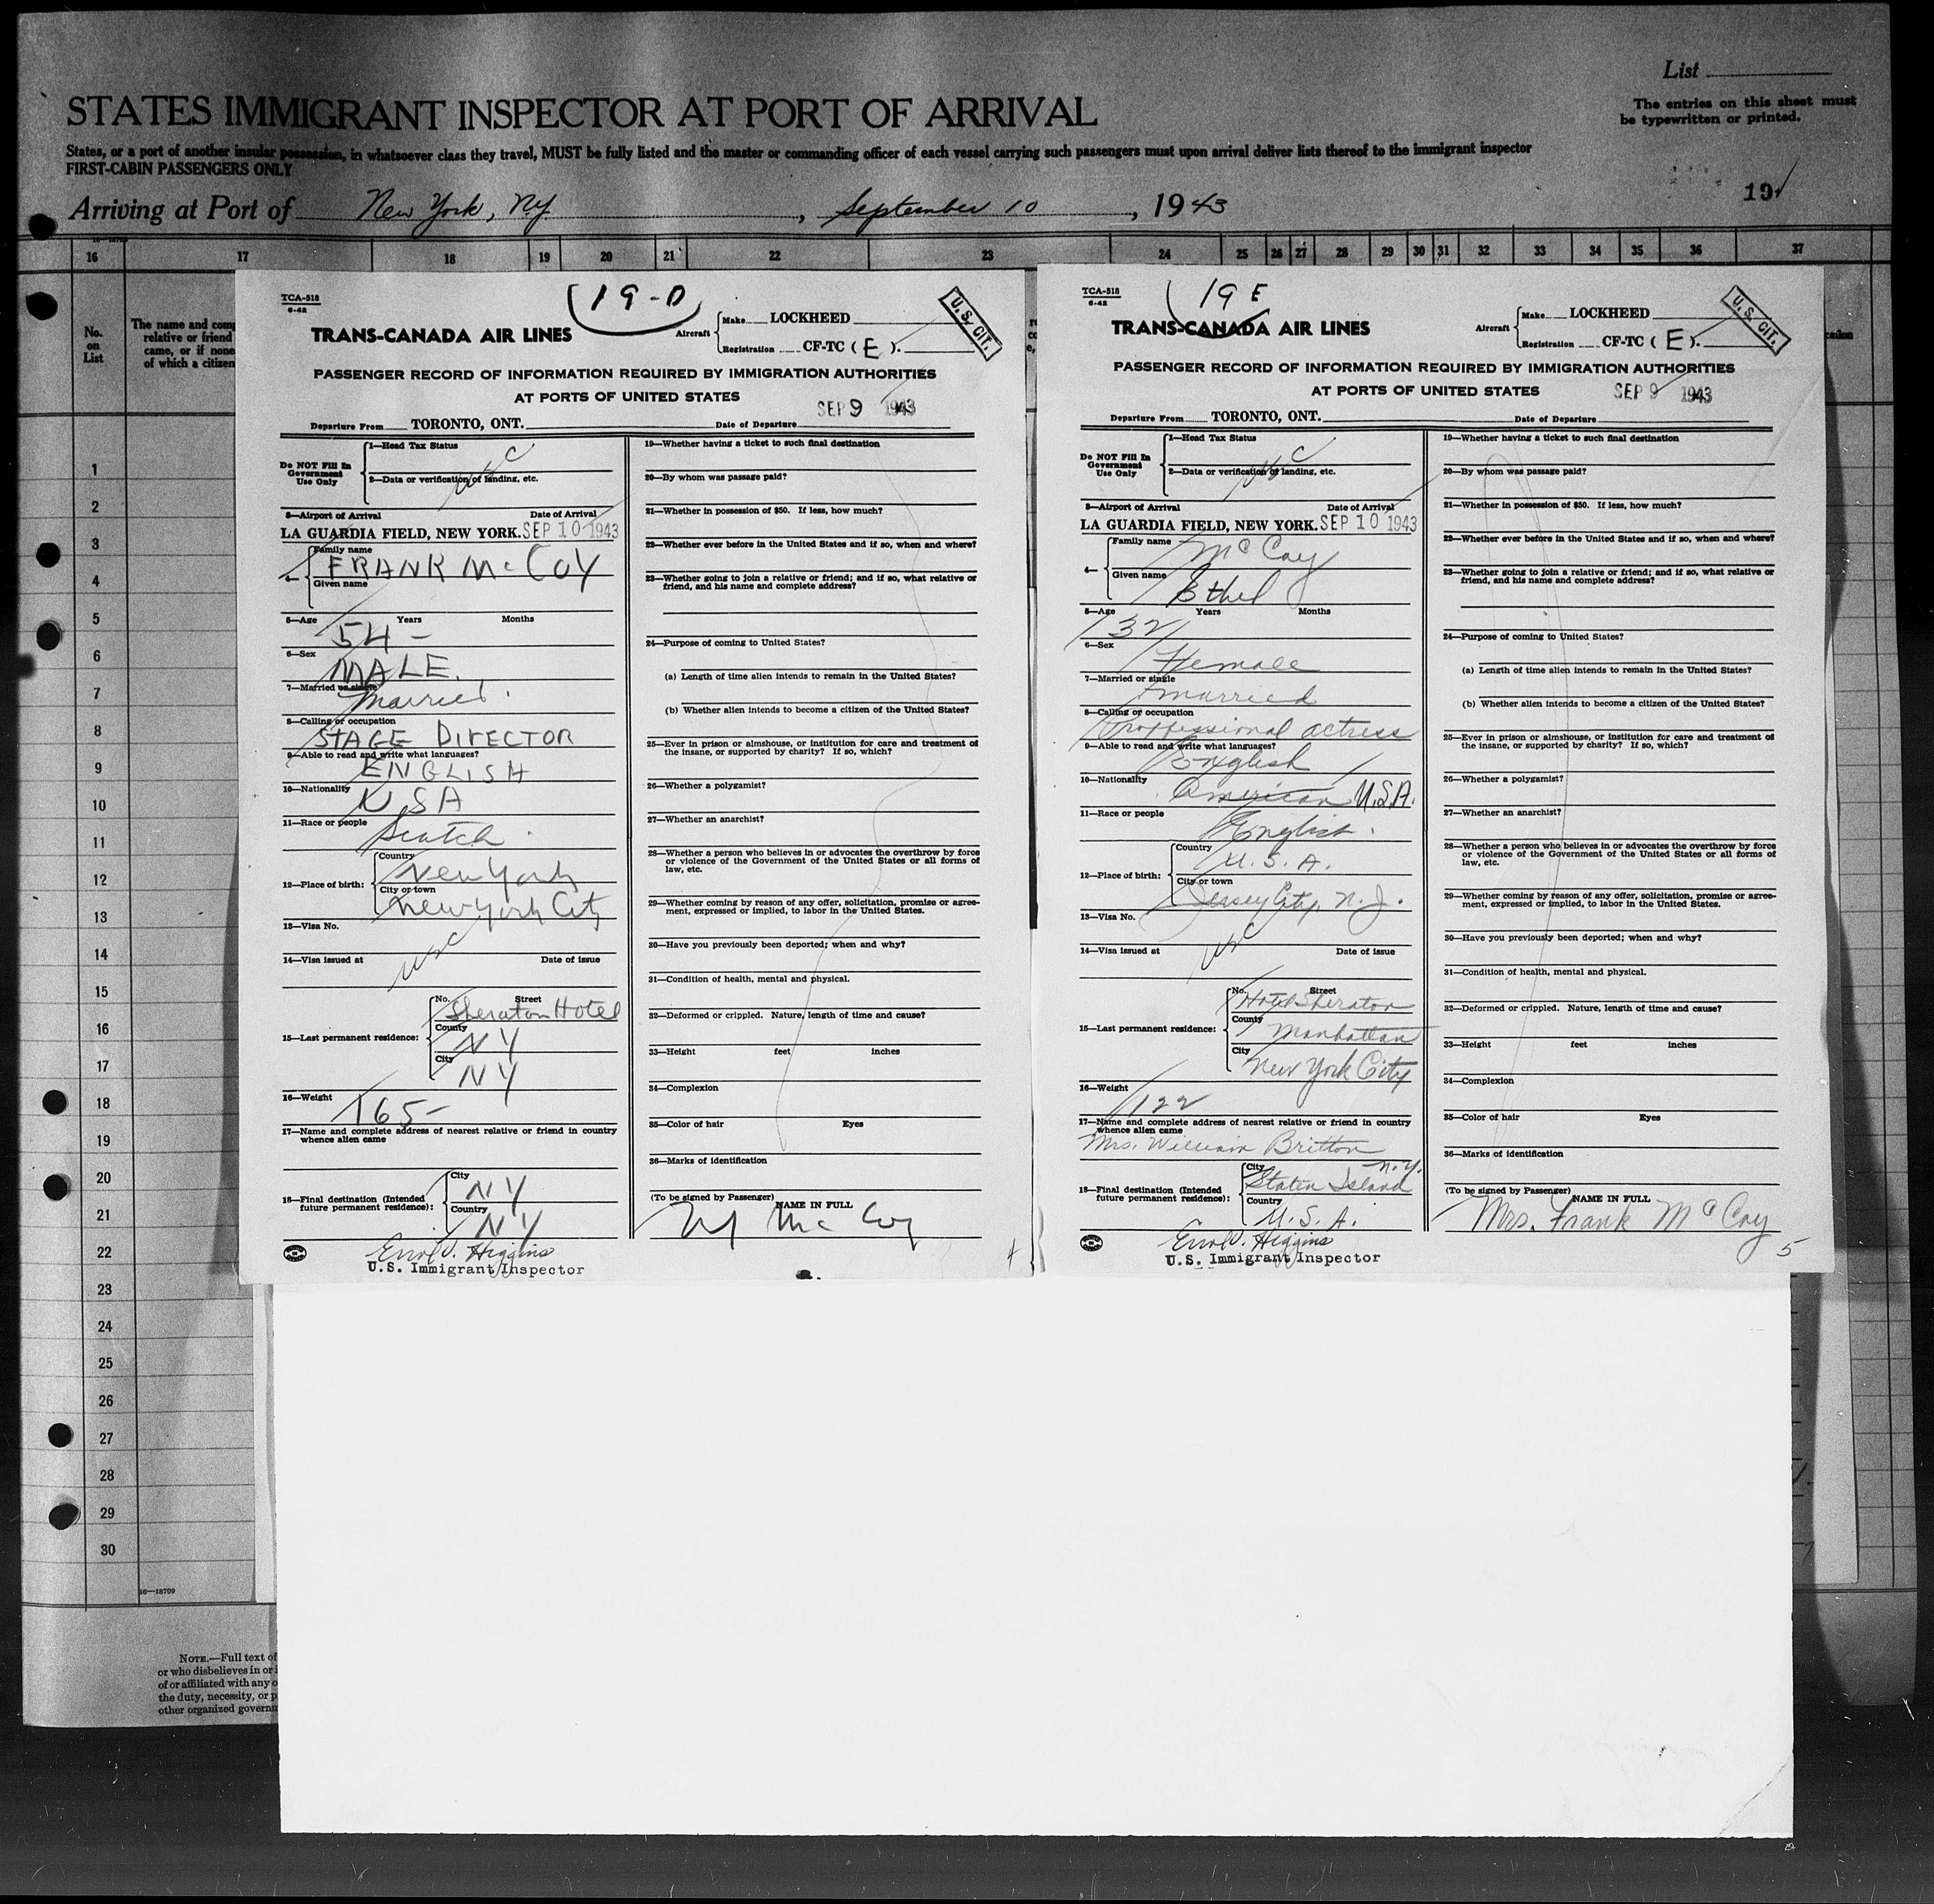 List
The entries on this sheet must
be typewritten or printed.
STATES IMMIGRANT INSPECTOR AT PORT OF ARRIVAL
States, or a port of another insular possession, in whatsoever class they travel, MUST be fully listed and the master or commanding officer of each vessel carrying such passengers must upon arrival deliver lists thereof to the immigrant inspector
FIRST-CABIN PASSENGERS ONLY
Arriving at Port of New York, N.Y. , September 10 , 1943
191
16 17 18 19 20 21 22 23 24 25 26 27 28 29 30 31 32 33 34 35 36 37
No.
on
List
The name and comp
relative or friend
came, or if none
of which a citizen
1
2
3
4
5
6
7
8
9
10
11
12
13
14
15
16
17
18
19
20
21
22
23
24
25
26
27
28
29
30
16—18709
NOTE.—Full text of
or who disbelieves in or i
of or affiliated with any o
the duty, necessity, or p
other organized governm
TCA-518
6-42
19-D
TRANS-CANADA AIR LINES
Aircraft
Make LOCKHEED
Registration CF-TC ( E ).
U.S. CIT.
PASSENGER RECORD OF INFORMATION REQUIRED BY IMMIGRATION AUTHORITIES
AT PORTS OF UNITED STATES
SEP 9 1943
Departure From TORONTO, ONT. Date of Departure
Do NOT Fill In
Government
Use Only
1—Head Tax Status
USC
2—Data or verification of landing, etc.
3—Airport of Arrival Date of Arrival
LA GUARDIA FIELD, NEW YORK. SEP 10 1943
4—
Family name
FRANK McCOY
Given name
5—Age Years Months
54 -
6—Sex
MALE.
7—Married or single
Married.
8—Calling or occupation
STAGE DIRECTOR
9—Able to read and write what languages?
ENGLISH
10—Nationality
USA
11—Race or people
Scotch.
12—Place of birth:
Country
New York
City or town
New York City
13—Visa No.
USC
14—Visa issued at Date of issue
15—Last permanent residence:
No. Street
Sheraton Hotel
County
NY
City
NY
16—Weight
165-
17—Name and complete address of nearest relative or friend in country
whence alien came
18—Final destination (Intended
future permanent residence):
City
NY
Country
NY
Errol J. Higgins
U.S. Immigrant Inspector
19—Whether having a ticket to such final destination
20—By whom was passage paid?
21—Whether in possession of $50. If less, how much?
22—Whether ever before in the United States and if so, when and where?
23—Whether going to join a relative or friend; and if so, what relative or
friend, and his name and complete address?
24—Purpose of coming to United States?
(a) Length of time alien intends to remain in the United States?
(b) Whether alien intends to become a citizen of the United States?
25—Ever in prison or almshouse, or institution for care and treatment of
the insane, or supported by charity? If so, which?
26—Whether a polygamist?
27—Whether an anarchist?
28—Whether a person who believes in or advocates the overthrow by force
or violence of the Government of the United States or all forms of
law, etc.
29—Whether coming by reason of any offer, solicitation, promise or agree-
ment, expressed or implied, to labor in the United States.
30—Have you previously been deported; when and why?
31—Condition of health, mental and physical.
32—Deformed or crippled. Nature, length of time and cause?
33—Height feet inches
34—Complexion
35—Color of hair Eyes
36—Marks of identification
(To be signed by Passenger) NAME IN FULL
McCoy
4
TCA-518
6-42
19 E
TRANS-CANADA AIR LINES
Aircraft
Make LOCKHEED
Registration CF-TC ( E ).
U.S. CIT.
PASSENGER RECORD OF INFORMATION REQUIRED BY IMMIGRATION AUTHORITIES
AT PORTS OF UNITED STATES
SEP 9 1943
Departure From TORONTO, ONT. Date of Departure
Do NOT Fill In
Government
Use Only
1—Head Tax Status
USC
2—Data or verification of landing, etc.
3—Airport of Arrival Date of Arrival
LA GUARDIA FIELD, NEW YORK. SEP 10 1943
4—
Family name
McCoy
Given name
Ethel
5—Age Years Months
32
6—Sex
Female
7—Married or single
married
8—Calling or occupation
Proffessional actress
9—Able to read and write what languages?
English
10—Nationality
American U.S.A.
11—Race or people
English.
12—Place of birth:
Country
U.S.A.
City or town
Jersey City, N.J.
13—Visa No.
USC
14—Visa issued at Date of issue
15—Last permanent residence:
No. Street
Hotel Sheraton
County
Manhattan
City
New York City
16—Weight
122
17—Name and complete address of nearest relative or friend in country
whence alien came
Mrs. William Britton
18—Final destination (Intended
future permanent residence):
City N.Y.
Staten Island
Country
U.S.A.
Errol J. Higgins
U.S. Immigrant Inspector
19—Whether having a ticket to such final destination
20—By whom was passage paid?
21—Whether in possession of $50. If less, how much?
22—Whether ever before in the United States and if so, when and where?
23—Whether going to join a relative or friend; and if so, what relative or
friend, and his name and complete address?
24—Purpose of coming to United States?
(a) Length of time alien intends to remain in the United States?
(b) Whether alien intends to become a citizen of the United States?
25—Ever in prison or almshouse, or institution for care and treatment of
the insane, or supported by charity? If so, which?
26—Whether a polygamist?
27—Whether an anarchist?
28—Whether a person who believes in or advocates the overthrow by force
or violence of the Government of the United States or all forms of
law, etc.
29—Whether coming by reason of any offer, solicitation, promise or agree-
ment, expressed or implied, to labor in the United States.
30—Have you previously been deported; when and why?
31—Condition of health, mental and physical.
32—Deformed or crippled. Nature, length of time and cause?
33—Height feet inches
34—Complexion
35—Color of hair Eyes
36—Marks of identification
(To be signed by Passenger) NAME IN FULL
Mrs. Frank McCoy
5